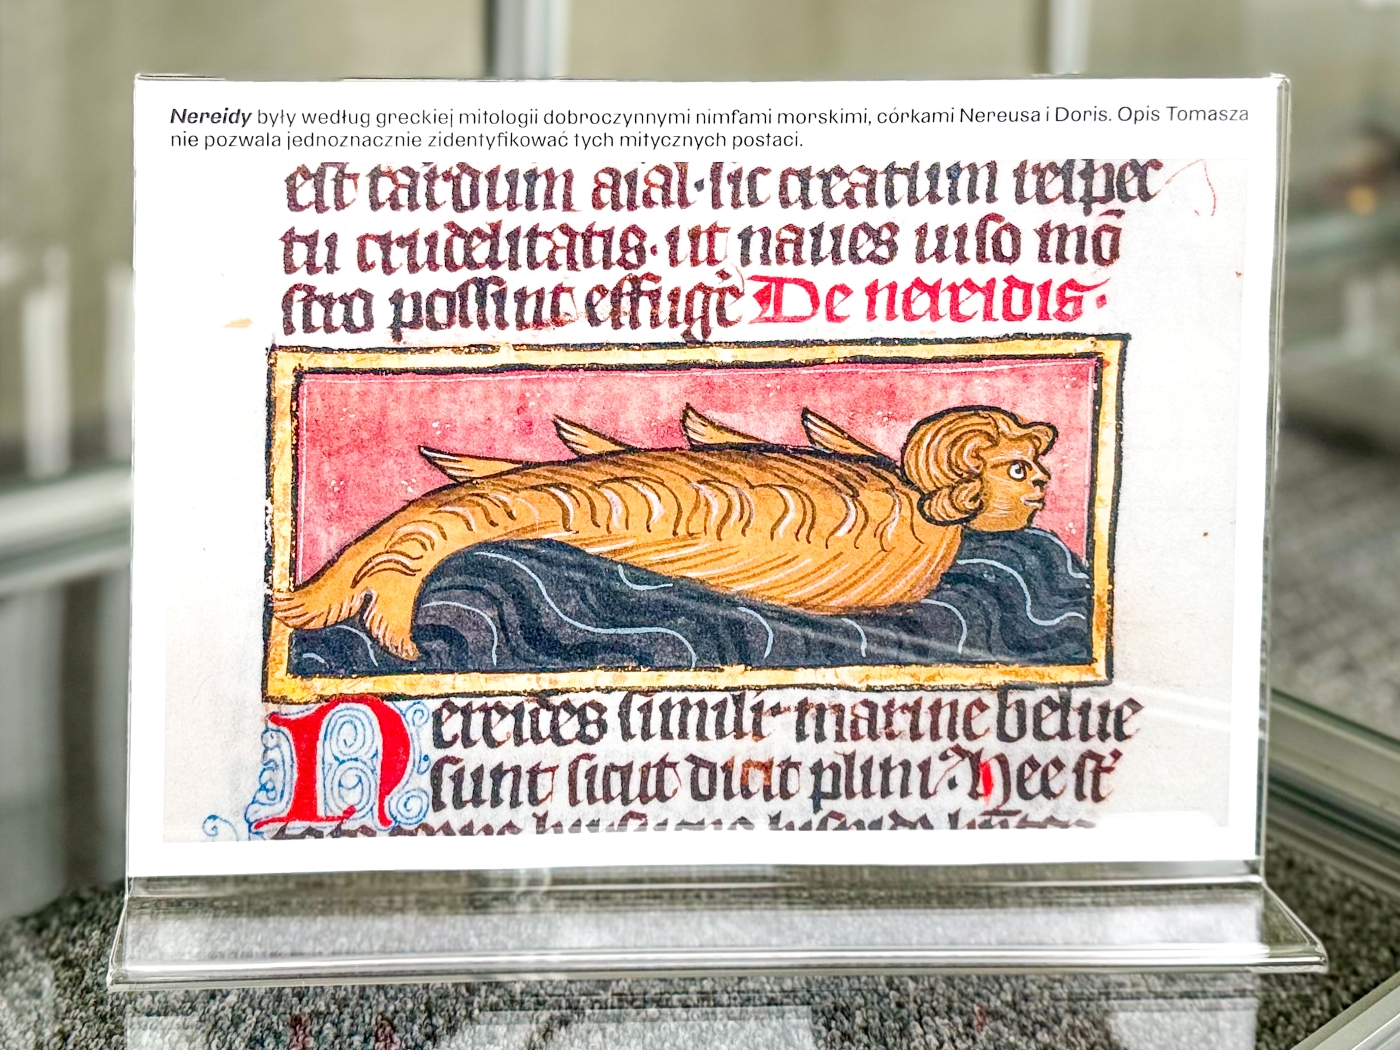 Nereidy były według greckiej mitologii dobroczynnymi nimfami morskimi, córkami Nereusa i Doris. Opis Tomasza
nie pozwala jednoznacznie zidentyfikować tych mitycznych postaci.
est tardum aial· sic creatum respec
tu crudelitatis· ut naues uiso mō
stro possint effugē De nereidis·
Nereides simili· marine belue
sunt sicut dicit plini· Hee st